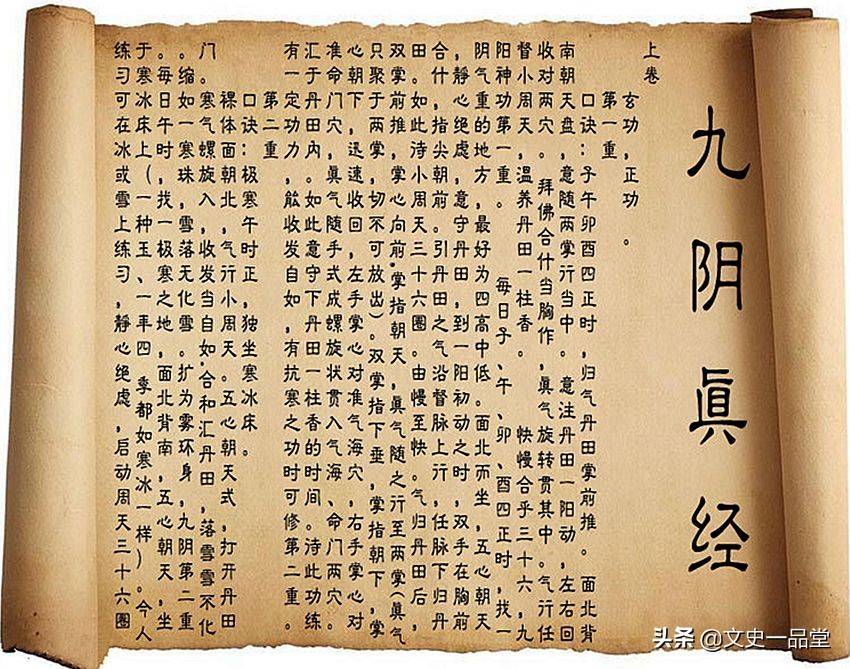 九阴眞经
上卷
玄功，正功。
第一重
口诀：子午卯酉四正时，归气丹田掌前推。 面北背
南朝天盘，意随两掌行当中。意注丹田一阳动，左右回
收对两穴。 拜佛合什当胸作，眞气旋转贯其中。气行任
督小周天，温养丹田一柱香。 快慢合乎三十六，九
阳神功第一重。 每日子、午、卯、酉四正时，找一
阴气重的地方，最好为四高中低。面北而坐，五心朝天
合，静心绝虑，意守丹田，到一阳初动之时，双手在胸前
合什，指尖朝前。引丹田之气沿督脉上行，任脉下归丹
田。如此洔小周天三十六圈。由慢至快。气归丹田后，
双掌前推，掌心向前，掌指朝天，眞气随之行至两掌（眞气
只聚于两掌，切不可放出）。双掌指下垂，掌指朝下，掌
心朝下，迅速收回，左手掌心对准气海穴，右手掌心对
准命门穴，眞气随手式成螺旋状贯入气海、命门两穴。
汇于丹田内。如此意守下丹田一柱香的时间。洔此功练
有一定功力，能收发自如，有抗寒之功时可修第二重。
第二重
口诀：极寒午时正，独坐寒冰床。
裸体面朝北，气行小周天。五心朝天式，打开丹田
门。 寒气螺旋入，收发当自如，合和汇丹田，落雪雪不化
。缩如一寒珠，雪落无化雪。扩为雾环身，九阴第二重
。每日午时，找一极寒之地，面北背南，五心朝天，坐
于寒冰床上（一种玉、一年四季都如寒冰一样）。今人
练习可在冰或雪上练习，静心绝虑，启动周天三十六圈
头条 @文史一品堂